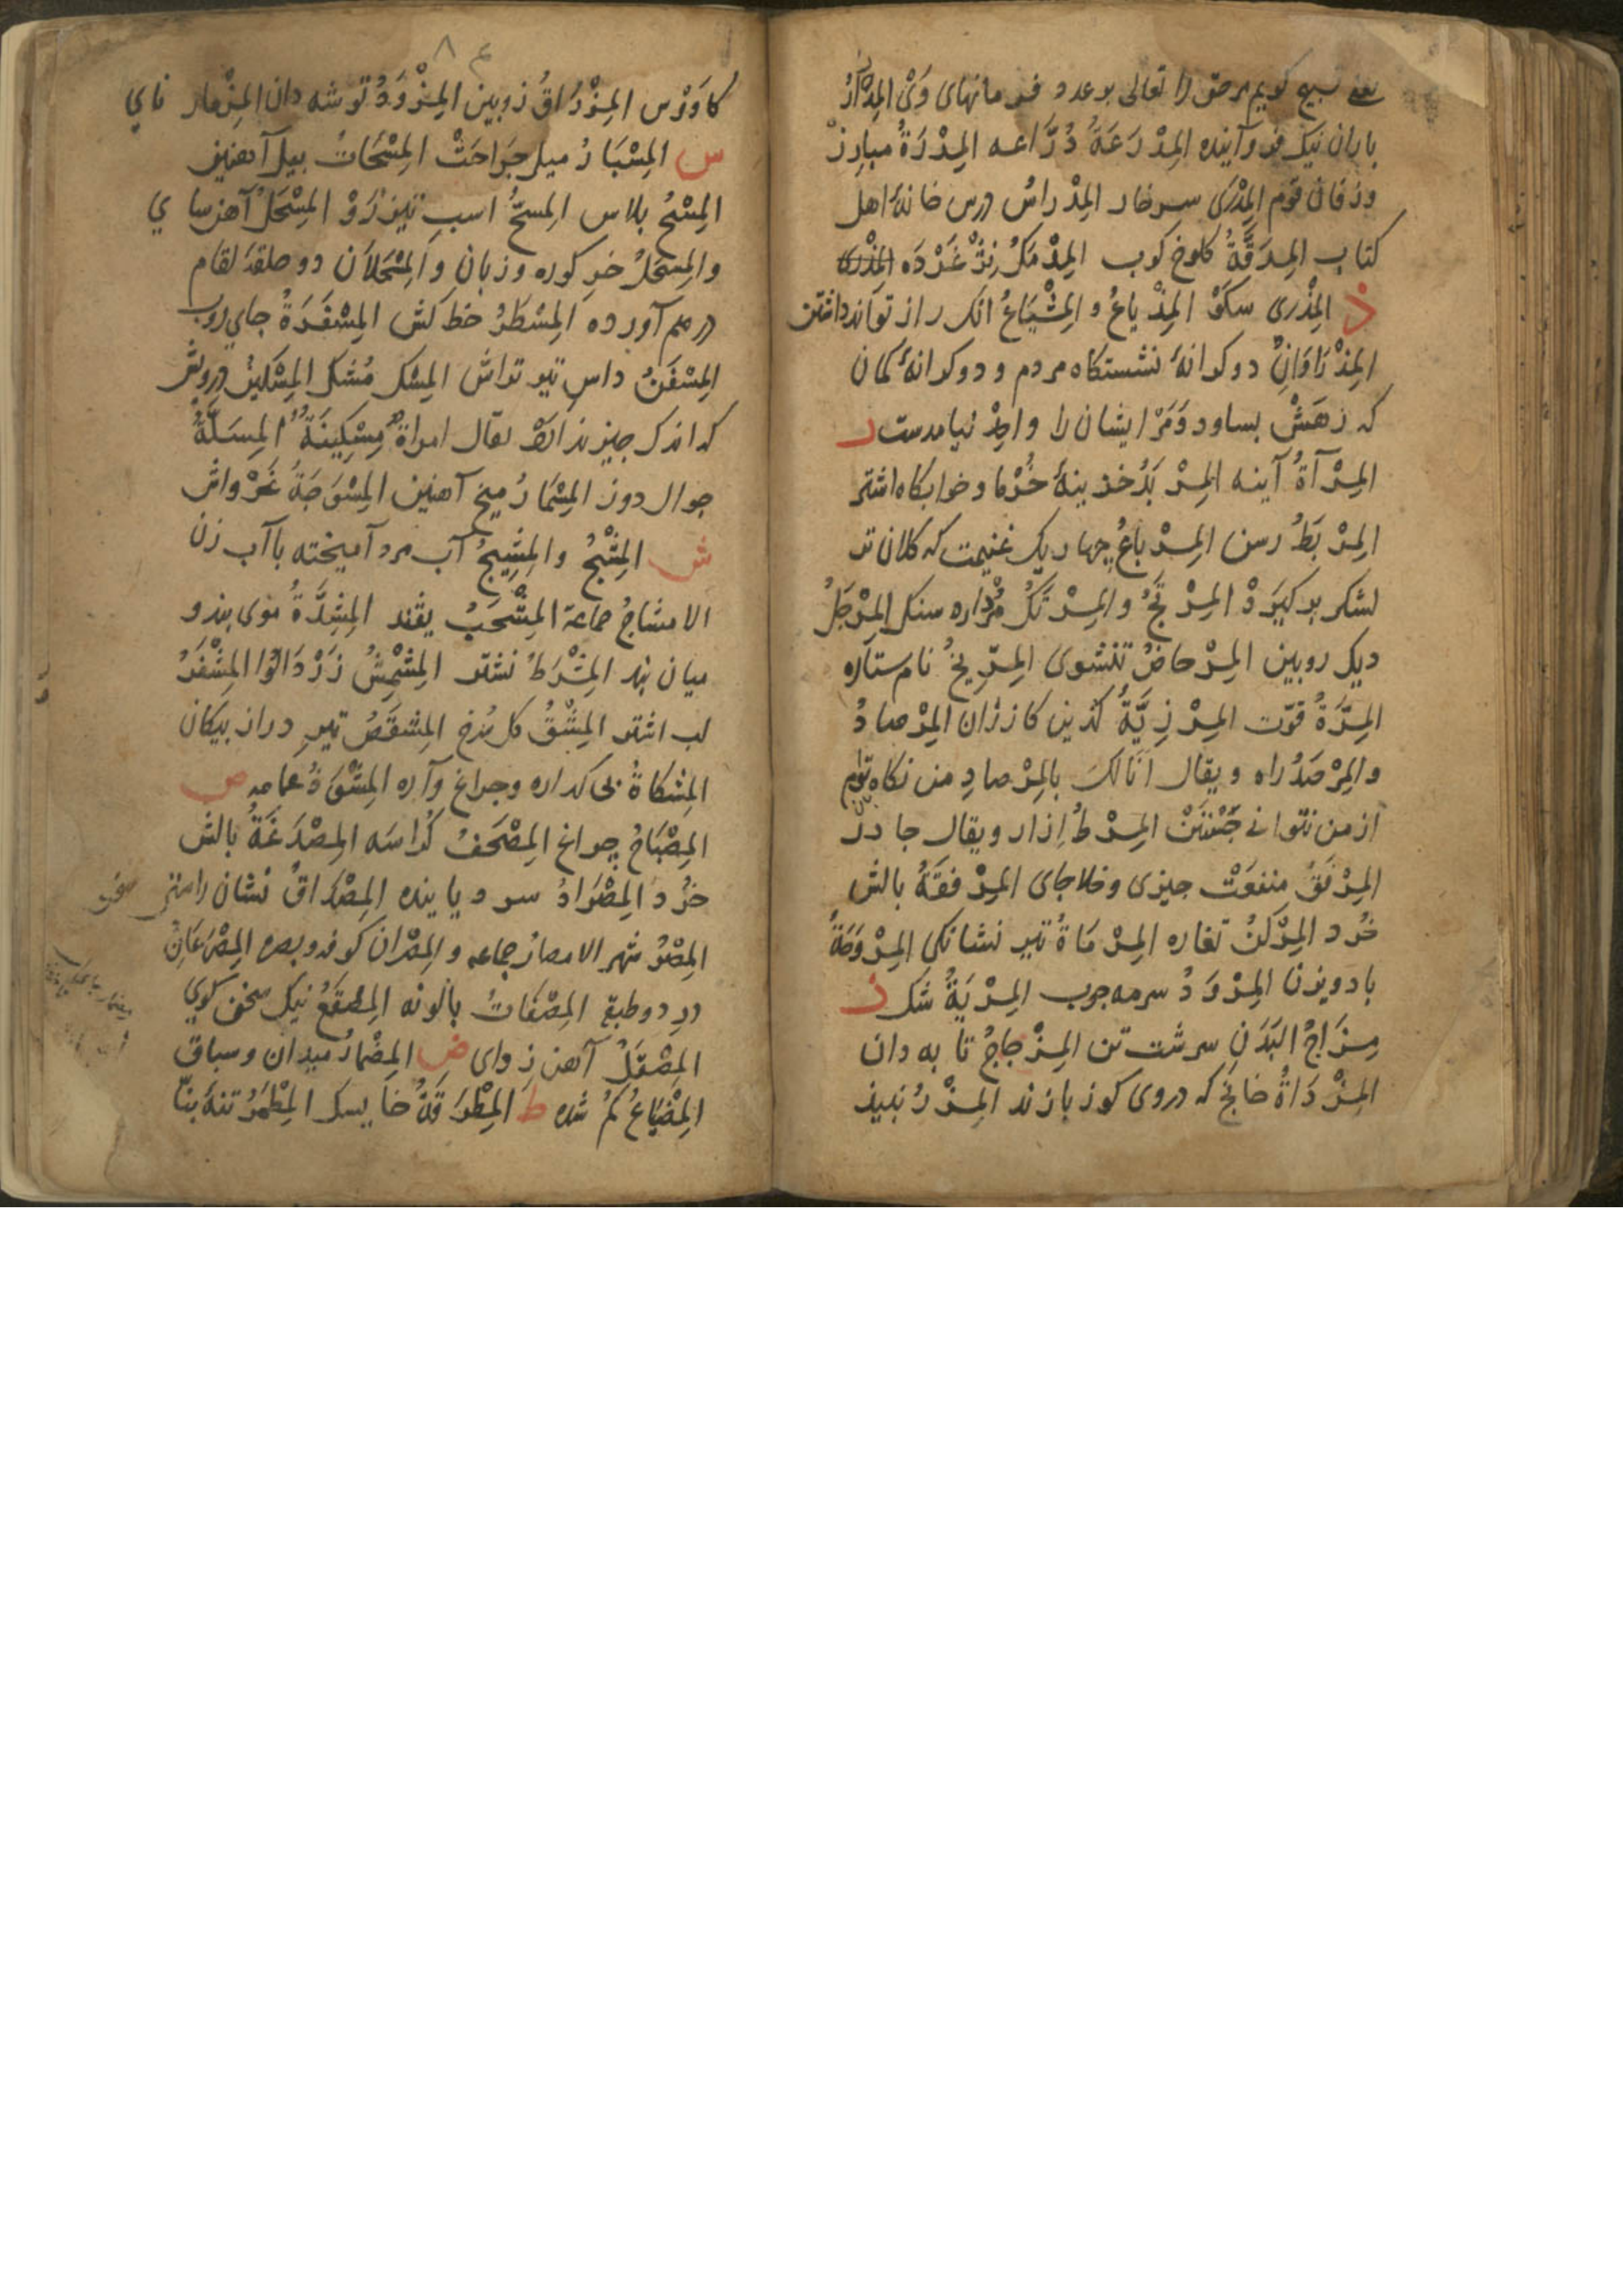 یعنی تسبیح کویم مرحق را تعالی بوعد و فرمانهای وی المِدْرَارُ
باران نیک فرو آینده المِدْرَعَةُ دُرَّاعه المِدْرَهُ مبارز
وزفان قوم المِدْرَی سرخار المِدْراسُ درس خانهٔ اهل
کتاب المِدَقَّةُ کلوخ کوب المِدْمَکُ
ذ المِذْری سکو المِذْیاعُ و المِشْیَاعُ انک راز نتواند داشتن
المِذْرَاوَانِ دو کرانهٔ نشستکاه مردم و دو کرانهٔ کمان
که زهش بساود وَمَرْ ایشان را واحِدْ نیامدست ر
المِرْآةُ آینه المِرْبَدُ خزینهٔ خُرْما و خوابکاه اشتر
المِرْبَطُ رسن المِرْباعُ چهار یک غنیمت که کلان تر
لشکر برکیرَدْ المِرْتَجُ و المِرْتَکُ مُرْداره سنک المِرْجَلُ
دیک رویین المِرْحاضُ تنشوی المِرّیخُ نام ستاره
المِرَّةُ قوّت المِرْزَبَّةُ کدین کازران المِرْصادُ
والمِرْصَدُ راه و یقال انالک بالمِرْصادِ من نکاه توام
از من نتوانی جَسْتَنْ المِرْطُ اِزار و یقال جادر
المِرْفَقُ منفعَتْ جیزی و خلاجای المِرْفَقَةُ بالش
خُرد المِرْکَنُ تغاره المِرْمَاةُ تیر نشانکی المِرْوَحَةُ
بادویزن المِرْوَدُ سرمه جوب المِرْیَةُ شک ز
مِزَاجُ البَدَنِ سرشت تن المِزْجاجُ تابه دان
المِزْدَاةُ خانج که دروی کوز بازند المِزْرُ نبیذ
کاوَرْس المِزْرَاقُ زوبین المِزْوَدُ توشه دان المِزْمار نای
س المِسْبَارُ میل جَراحَتْ المِسْحَاتُ بیل آهنین
المِسْحُ بلاس المِسَحُّ اسب تیزرَوْ المِسْحَلُ آهن سای
والمِسْحَلُ خر کوره و زبان و المِسْحَلاَن دو حلقهٔ لقام
درهم آورده المِسْطَرُ خط کش المِسْفَرَةُ جای روب
المِسْفَنُ داس تیر تراش المِسْک مُشک المِسْکینُ درویش
که اندک جیز یقال امراة مِسْکِینَةٌ المِسَلَّةُ
جوال دوز المِسْمَارُ میخ آهنین المِسْوَجَةُ غَرْواش
ش المِشْجُ والمَشِیجُ آب مرد آمیخته با آب زن
الامشاجُ جماعة المِشْجَبُ المِشَدَّةُ موی بند و
میان بند المِشْرَطُ نشتر المِشْمِشُ زَرْدَالُوا المِشْفَرُ
لب اشتر المِشْقُ کل سُرخ المِشْقَصُ تیر دراز بیکان
المِشکاةُ بی کداره و جراغ وآره المِشْوَذُ عمامه ص
المِصْبَاحُ چراغ المِصْحَفُ کُراسَه المِصْدَغَةُ بالش
خُرد المِصْرَادُ سرد یابنده المِصْدَاقُ نشان راستی
المِصْرُ شهر الامصارُ جماعه و المِصْران کوفه و بصره المِصْرَعَانِ
در دو طبقه المِصْفَاتُ بالونه المِصْقَعُ نیک سخن کوی
المِصْقَلُ آهن زدای ض المِضْمارُ میدان و سباق
المِضْیَاعُ کم شده ط المِطْرَقَةُ خایسک المِطْمَرُ تنهٔ بنّا